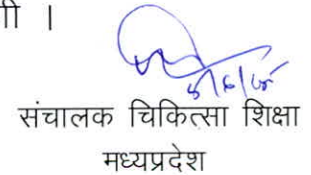 । 
संचालक चिकित्सा शिक्षा
मध्यप्रदेश